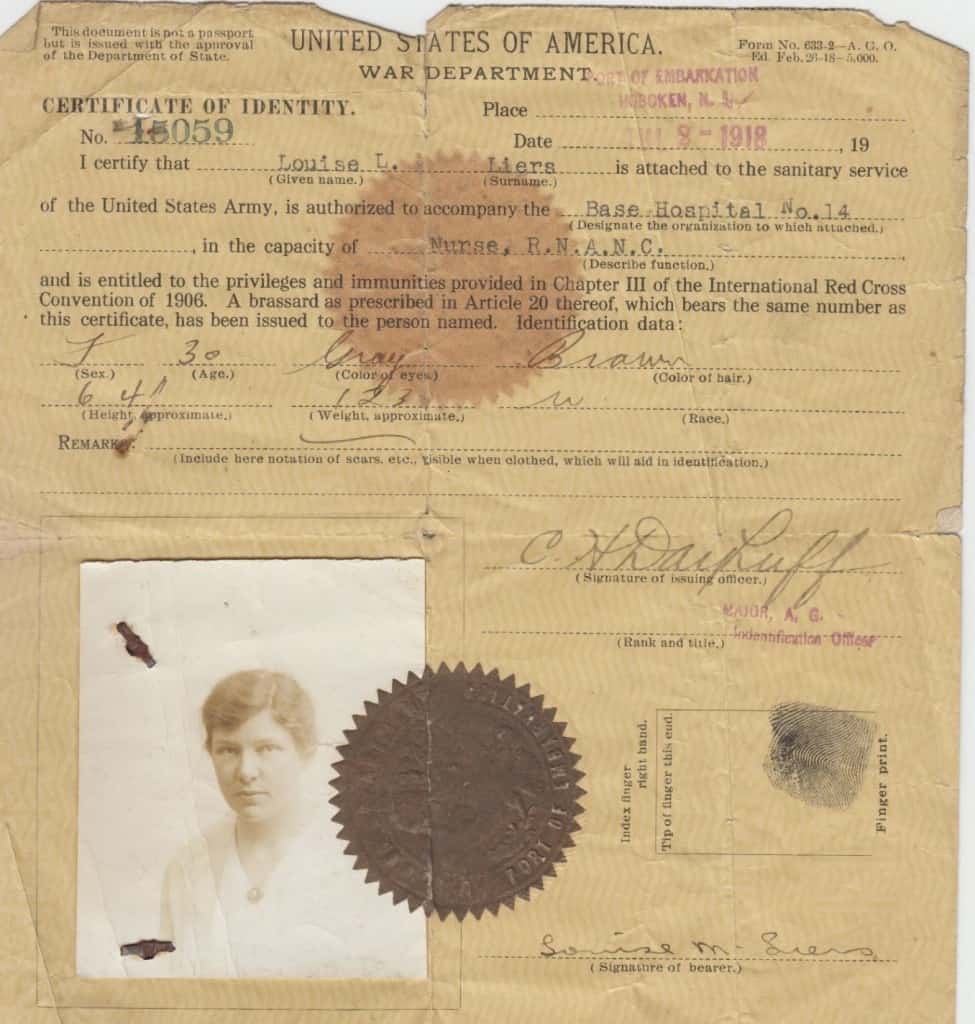 This document is not a passport
but is issued with the approval
of the Department of State.
UNITED STATES OF AMERICA.
WAR DEPARTMENT.
Form No. 633-2—A. G. O.
Ed. Feb. 26-18—5,000.
PORT OF EMBARKATION
HOBOKEN, N. J.
CERTIFICATE OF IDENTITY.
Place
No. 15059
Date 8 - 1918 , 19
I certify that Louise L. Liers is attached to the sanitary service
(Given name.) (Surname.)
of the United States Army, is authorized to accompany the Base Hospital No.14
(Designate the organization to which attached.)
, in the capacity of Nurse, R.N.A.N.C.
(Describe function.)
and is entitled to the privileges and immunities provided in Chapter III of the International Red Cross
Convention of 1906. A brassard as prescribed in Article 20 thereof, which bears the same number as
this certificate, has been issued to the person named. Identification data:
F 30 Gray Brown
(Sex.) (Age.) (Color of eyes.) (Color of hair.)
6 4 123 W
(Height, approximate.) (Weight, approximate.) (Race.)
REMARKS:
(Include here notation of scars, etc., visible when clothed, which will aid in identification.)
(Signature of issuing officer.)
MAJOR, A. G.
Indentification Officer
(Rank and title.)
Index finger
right hand.
Tip of finger this end.
Finger print.
PORT OF
Louise M. Liers
(Signature of bearer.)